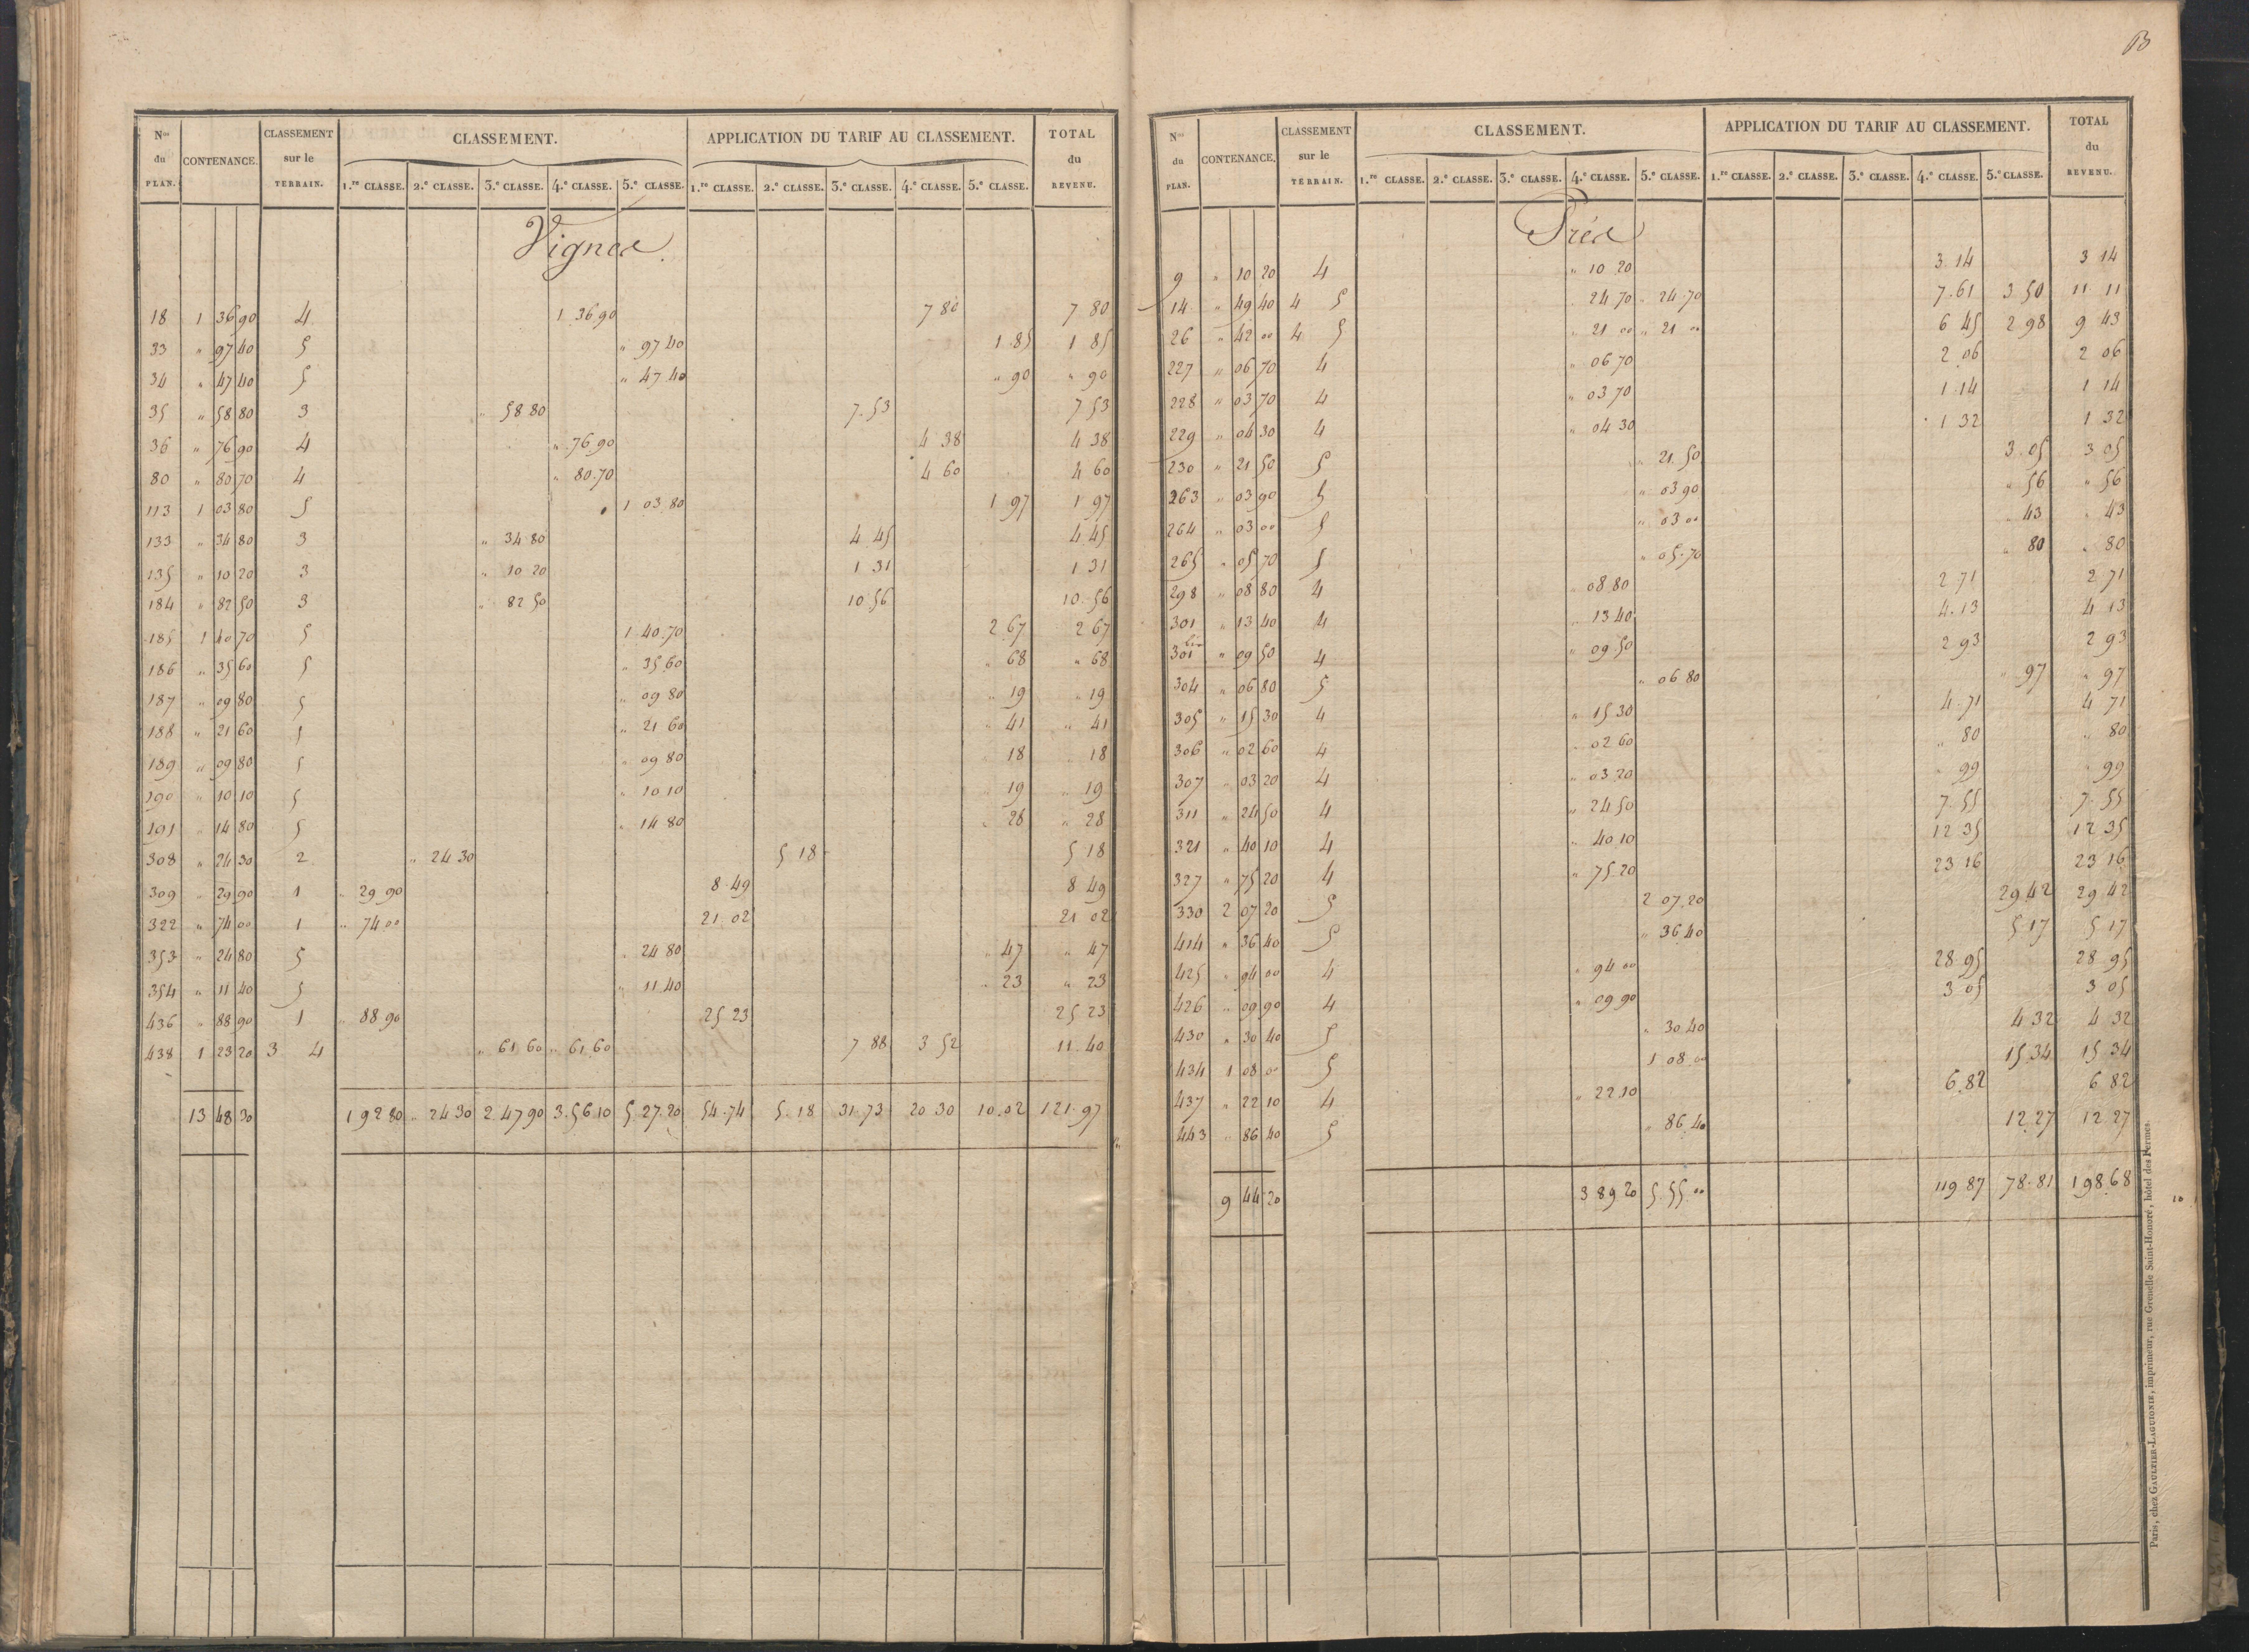 Nos du PLAN. CONTENANCE. CLASSEMENT sur le TERRAIN. CLASSEMENT. APPLICATION DU TARIF AU CLASSEMENT. TOTAL du REVENU.
1.re CLASSE. 2.e CLASSE. 3.e CLASSE. 4.e CLASSE. 5.e CLASSE. 1.re CLASSE. 2.e CLASSE. 3.e CLASSE. 4.e CLASSE. 5.e CLASSE.
Vignes.
18 1 36 90 4 1 36 90 7 80 7 80
33 " 97 40 5 " 97 40 1 85 1 85
34 " 47 40 5 " 47 40 " 90 " 90
35 " 58 80 3 " 58 80 7.53 7 53
36 " 76 90 4 " 76.90 4 38 4 38
80 " 80 70 4 " 80.70 4 60 4 60
113 1 03 80 5 1 03.80 1 97 1 97
133 " 34 80 3 " 34.80 4 45 4.45
135 " 10 20 3 " 10 20 1 31 1 31
184 " 82 50 3 " 82 50 10.56 10.56
185 1 40 70 5 1.40.70 2.67 2 67
186 " 35 60 5 " 35.60 " 68 " 68
187 " 09 80 5 " 09 80 " 19 " 19
188 " 21 60 5 " 21 60 " 41 " 41
189 " 09 80 5 " 09 80 " 18 " 18
190 " 10 10 5 " 10 10 " 19 " 19
191 " 14 80 5 " 14 80 " 28 " 28
308 " 24 30 2 " 24 30 5 18 5 18
309 " 29 90 1 " 29 90 8.49 8 49
322 " 74 00 1 " 74 00 21.02 21 02
353 " 24 80 5 " 24 80 " 47 " 47
354 " 11 40 5 " 11 40 " 23 " 23
436 " 88 90 1 " 88.90 25 23 25 23
438 1 23 20 3 4 " 61 60 " 61.60 7 88 3 52 11.40
13 48 30 1 92 80 " 24 30 2.47 90 3.56 10 5.27.20 54.74 5.18 31.73 20 30 10.02 121.97
B
Nos du PLAN. CONTENANCE. CLASSEMENT sur le TERRAIN. CLASSEMENT. APPLICATION DU TARIF AU CLASSEMENT. TOTAL du REVENU.
1.re CLASSE. 2.e CLASSE. 3.e CLASSE. 4.e CLASSE. 5.e CLASSE. 1.re CLASSE. 2.e CLASSE. 3.e CLASSE. 4.e CLASSE. 5.e CLASSE.
Prés
9 " 10 20 4 " 10 20 3.14 3 14
14 " 49 40 4 5 " 24 70 " 24.70 7.61 3 50 11 11
26 " 42 00 4 5 " 21 00 " 21 00 6 45 2 98 9 43
227 " 06 70 4 " 06 70 2 06 2 06
228 " 03 70 4 " 03 70 1.14 1 14
229 " 04 30 4 " 04 30 1 32 1 32
230 " 21 50 5 " 21.50 3.05 3 05
263 " 03 90 5 " 03 90 " 56 " 56
264 " 03 00 5 " 03 00 " 43 " 43
265 " 05 70 5 " 05.70 " 80 " 80
298 " 08 80 4 " 08.80 2.71 2.71
301 " 13 40 4 " 13 40 4.13 4 13
301 bis " 09 50 4 " 09.50 2 93 2 93
304 " 06 80 5 " 06 80 " 97 " 97
305 " 15 30 4 " 15 30 4.71 4 71
306 " 02 60 4 " 02 60 " 80 " 80
307 " 03 20 4 " 03.20 " 99 " 99
311 " 24 50 4 " 24 50 7.55 7.55
321 " 40 10 4 " 40 10 12 35 12 35
327 " 75 20 4 " 75.20 23 16 23 16
330 2 07 20 5 2 07.20 29 42 29 42
414 " 36 40 5 " 36 40 5 17 5 17
425 " 94 00 4 " 94 00 28 95 28 95
426 " 09 90 4 " 09 90 3 05 3 05
430 " 30 40 5 " 30.40 4.32 4 32
434 1 08 00 5 1 08 00 15.34 15 34
437 " 22 10 4 " 22.10 6.82 6 82
443 " 86 40 5 " 86.40 12.27 12 27
9 44 20 3 89 20 5.55.00 119 87 78.81 198.68
Paris, chez GAULTIER-LAGUIONIE, imprimeur, rue Grenelle Saint-Honoré, hôtel des Fermes.
10